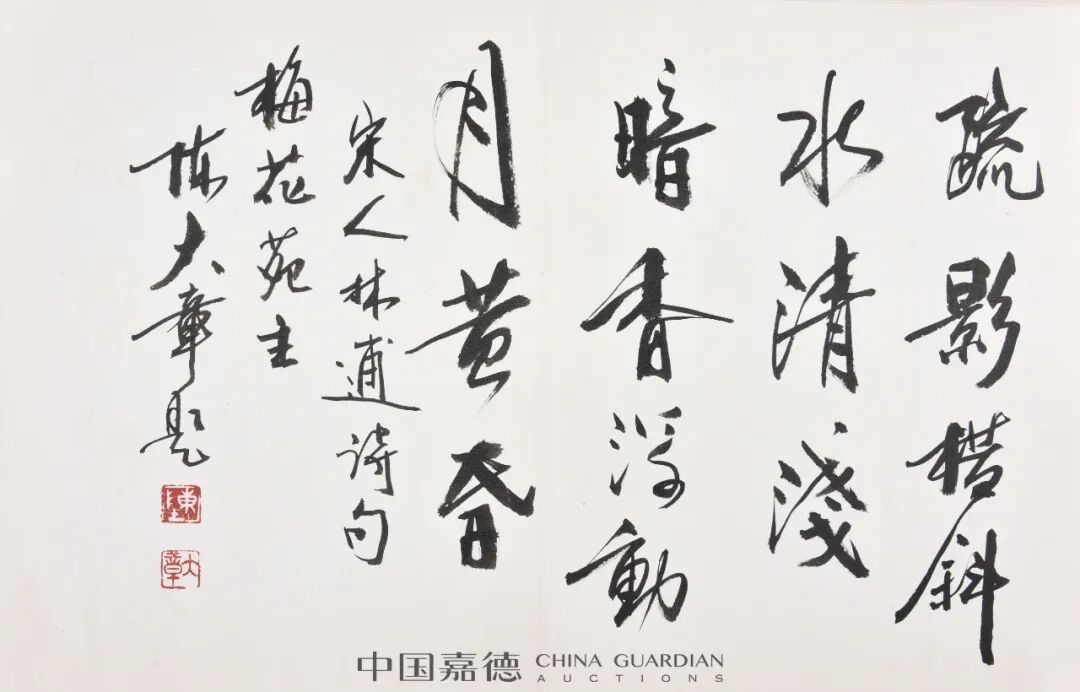 疏影横斜
水清淺
暗香浮動
月黄昏
宋人林逋詩句
梅花苑主
陳大章題
陳
大章
中国嘉德 CHINA GUARDIAN
AUCTIONS